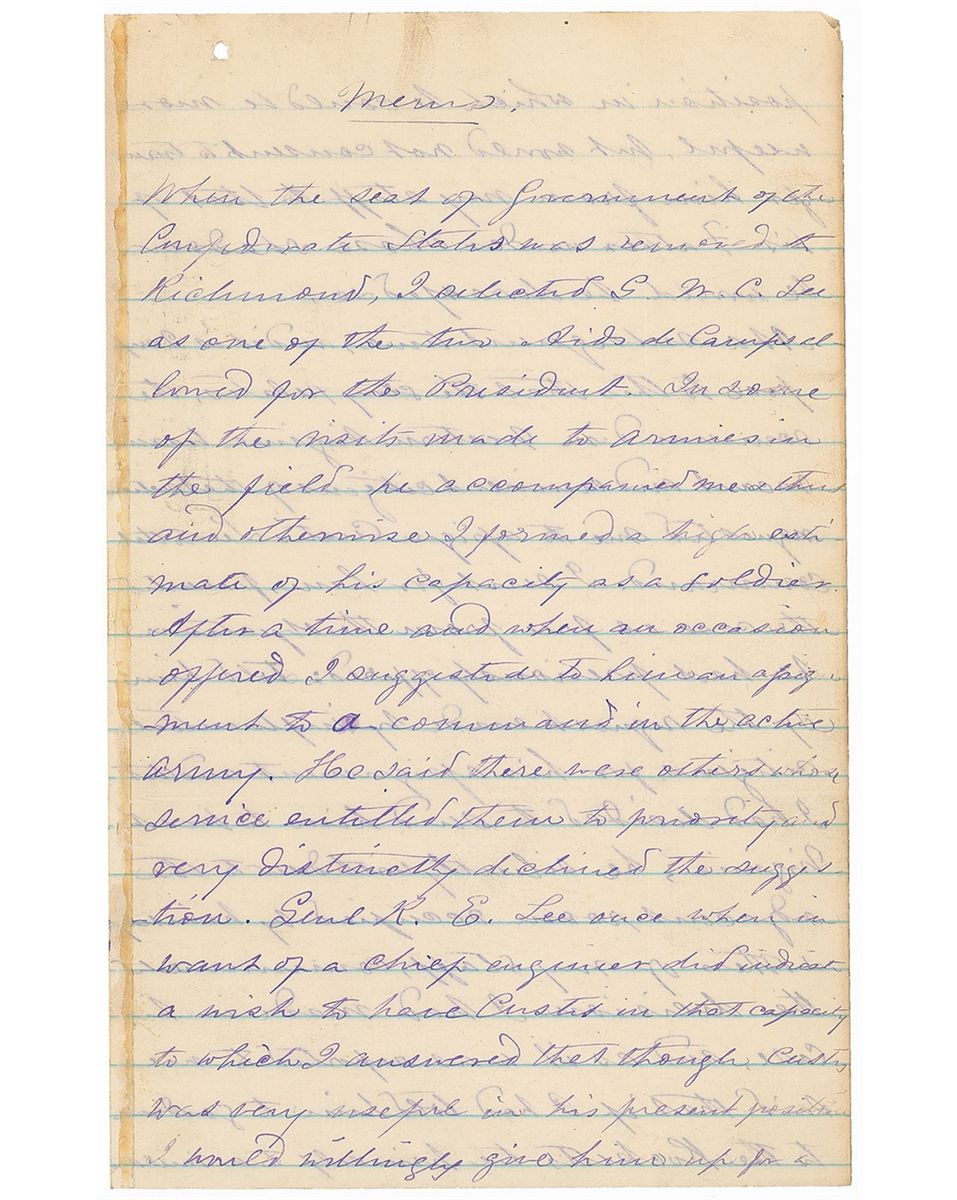 Memo.
When the seat of Government of the
Confederate States was removed to
Richmond, I selected G. W. C. Lee
as one of the two Aids de Camps al
lowed for the President. In some
of the visits made to armies in
the field he accompanied me & thus
and otherwise I formed a high esti
mate of his capacity as a soldier.
After a time and when an occasion
offered I suggested to him an
ment to a command in the active
army. He said there were others whose
service entitled them to priority and
very distinctly declined the sugges-
-tion. Genl R. E. Lee once when in
want of a chief engineer did indicate
a wish to have Custis in that capacity
to which I answered that though Custis
was very useful in his present position
I would willingly give him up for a